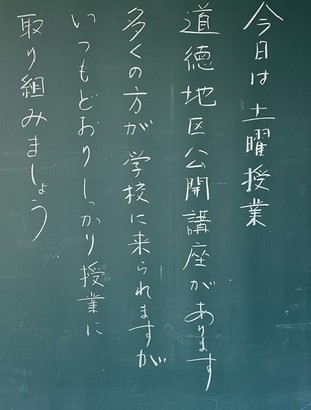 今日は土曜授業
道徳地区公開講座があります
多くの方が学校に来られますが
いつもどおりしっかり授業に
取り組みましょう